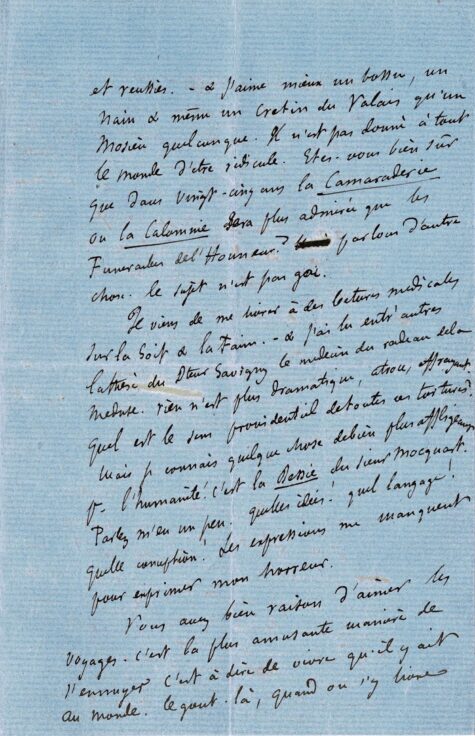 et reussies. - & j'aime mieux un bossu, un
nain & même un Cretin du Valais qu'un
Mosieu quelconque. Il n'est pas donné à tout
le monde d'etre ridicule. Etes-vous bien sûr
que dans vingt-cinq ans la Camaraderie
ou la Calomnie sera plus admirée que les
Funerailles de l'Honneur? parlons d'autre
chose. le sujet n'est pas gai.
Je viens de me livrer à des lectures medicales
sur la Soif & la Faim. - & j'ai lu entr'autres
la thèse du Dteur Savigny le medecin du radeau de la
Meduse. rien n'est plus dramatique, atroce, effrayant.
quel est le sens providentiel de toutes ces tortures?
Mais je connais quelque chose de bien plus affligeant
pr l'humanité! c'est la Bessie du sieur Mocquart.
Parlez m'en un peu. quelles idées! quel langage!
quelle conception! Les expressions me manquent
pour exprimer mon horreur.
Vous avez bien raison d'aimer les
voyages. c'est la plus amusante manière de
s'ennuyer c'est à dire de vivre qu'il y ait
au monde. le gout-là, quand on s'y livre